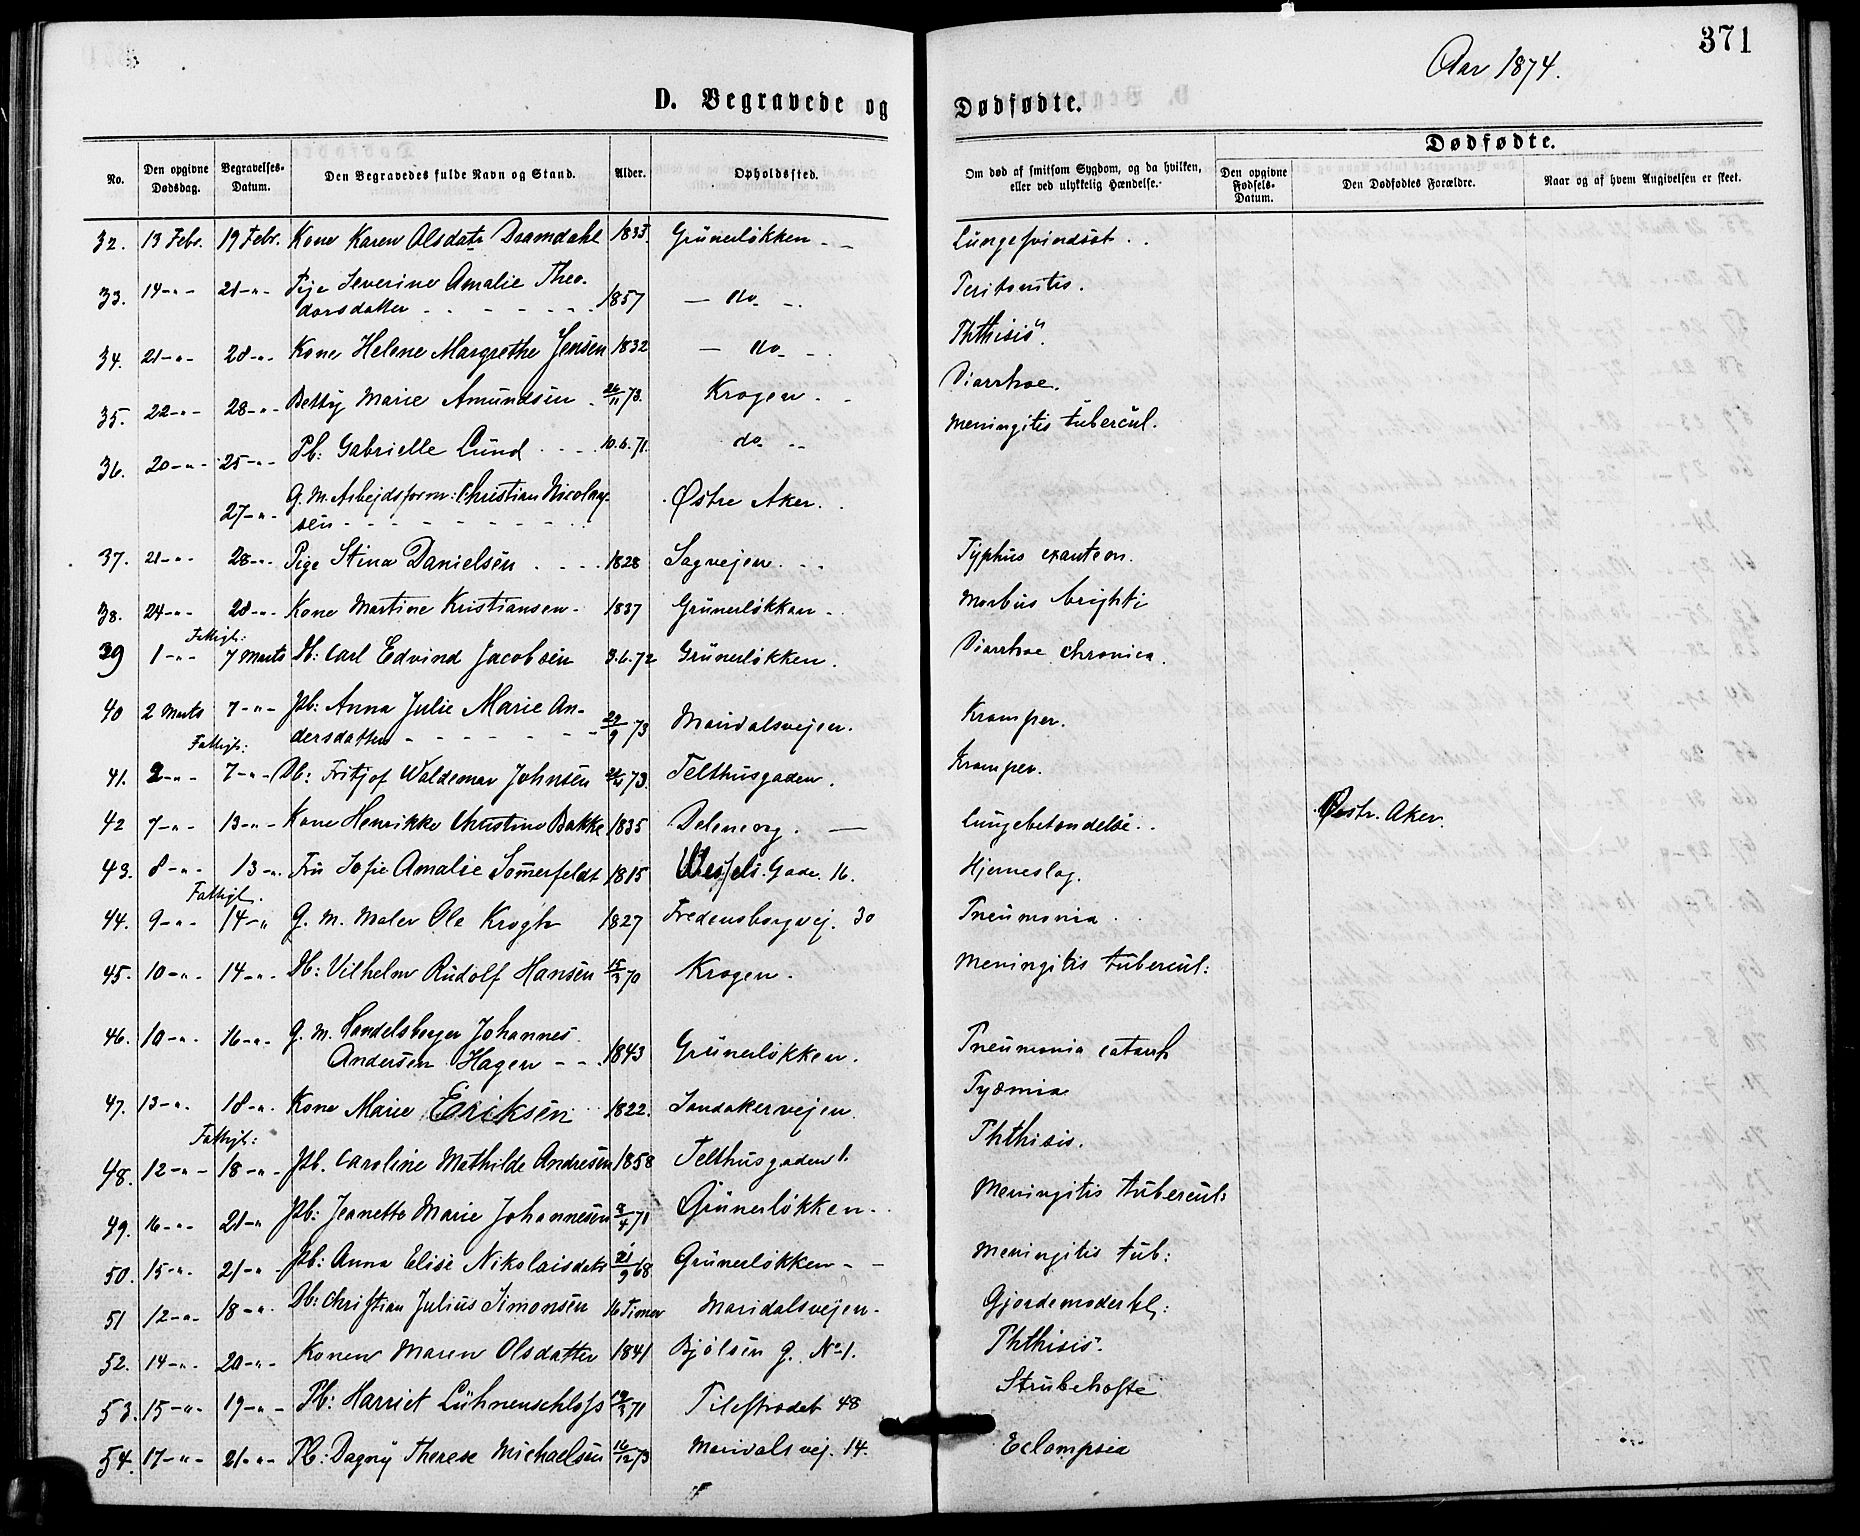 371
Aar 1874.
D. Begravede og Dødfødte.
No. | Den opgivne Dødsdag. | Begravelses-Datum. | Den Begravedes fulde Navn og Stand. | Alder. | Opholdssted. | Om død af smitsom Sygdom, og da hvilken, eller ved ulykkelig Hændelse. | Dødfødte. | Den opgivne Fødsels-Datum. | Den Dødfødtes Forældre. | Naar og af hvem Angivelsen er skeet.
32. 13 Febr. 19 Febr. Kone Karen Olsdatr Dramdahl 1835. Grünerløkken - - Lungesvindsot . .
33. 14-"- 21-"- Pige Severine Amalie Theo-
dorsdatter - - - - - - 1857 - do - - Peritonitis.
34. 21-"- 28-"- Kone Helene Margrethe Jensen 1832 - do - - Phthisis.
35. 22-"- 28-"- Betty Marie Amundsen - 26/11 73. Krogen - - Diarrhoe.
36. 20-"- 25-"- Pb: Gabrielle Lund - - - 10.6.71. do - - Meningitis tubercul.
27-"- G. M. Arbejdsform: Christian Nicolay-
sen - - - - - - - - Østre Aker. .
37. 21-"- 28-"- Pige Stina Danielsen . . . . 1828 Sagvejen. - - Typhus exantem.
38. 24-"- 28-"- Kone Martine Kristiansen - 1837 Grünerløkken - Morbus brighti
Fattigb:
39 1-"- 7 Marts Db: Carl Edvind Jacobsen 3.6.72 Grünerløkken. Diarrhoe chronica.
40 2 Marts 7-"- Pb: Anna Julie Marie An-
dersdatter - - - - - - - 29/9 73 Maridalsvejen. Kramper.
Fattigb:
41. 2-"- 7-"- Db: Fritjof Waldemar Johnsen 73. Telthusgaden. Kramper.
42 7-"- 13-"- Kone Henrikke Christine Bakke 1835 Deleneng. - Lungebetændelse. . Østr. Aker.
43. 8-"- 13-"- Fru Sofie Amalie Sommerfeldt 1815 Wessels Gade. 16. Hjerneslag.
Fattigb.
44. 9-"- 14-" G. M. Maler Ole Krogh 1827 Fredensborgvej. 30 Pneumonia . .
45. 10-"- 14-"- Db: Vilhelm Rudolf Hansen 15/3 70 Krogen. Meningitis tubercul:
46. 10-"- 16-"- G. M. Handelsborger Johannes
Andersen Hagen - - . 1843 Grünerløkken. Pneumonia catarrh
47. 13-"- 18-"- Kone Marie Eriksen 1822. Sandakervejen. Pyæmia
Fattigb:
48. 12-"- 18-"- Pb. Caroline Mathilde Andresen 1858 Telthusgaden 1. Phthisis.
49. 16-"- 21-" Pb: Jeanette Marie Johannesen /4 71 Grünerløkken - Meningitis tubercul:
50. 15-"- 21-"- Pb: Anna Elise Nikolaisdatr 21/9 68 Grünerløkken - - Meningitis tub:
51 12-"- 18-"- Db: Christian Julius Simonsen 16 Timer Maridalsvejen -
52. 14-"- 20-"- Konen Maren Olsdatter 1841 Bjølsen G. No 1. Phthisis.
53. 15-"- 19-"- Pb: Harriet Lühnenschloss 19/3 71 Pilestrædet 48 Strubehoste
54. 17-"- 21-"- Pb: Dagny Therese Michaelsen 16/12 73 Maridalsvej. 14. Eclampsia